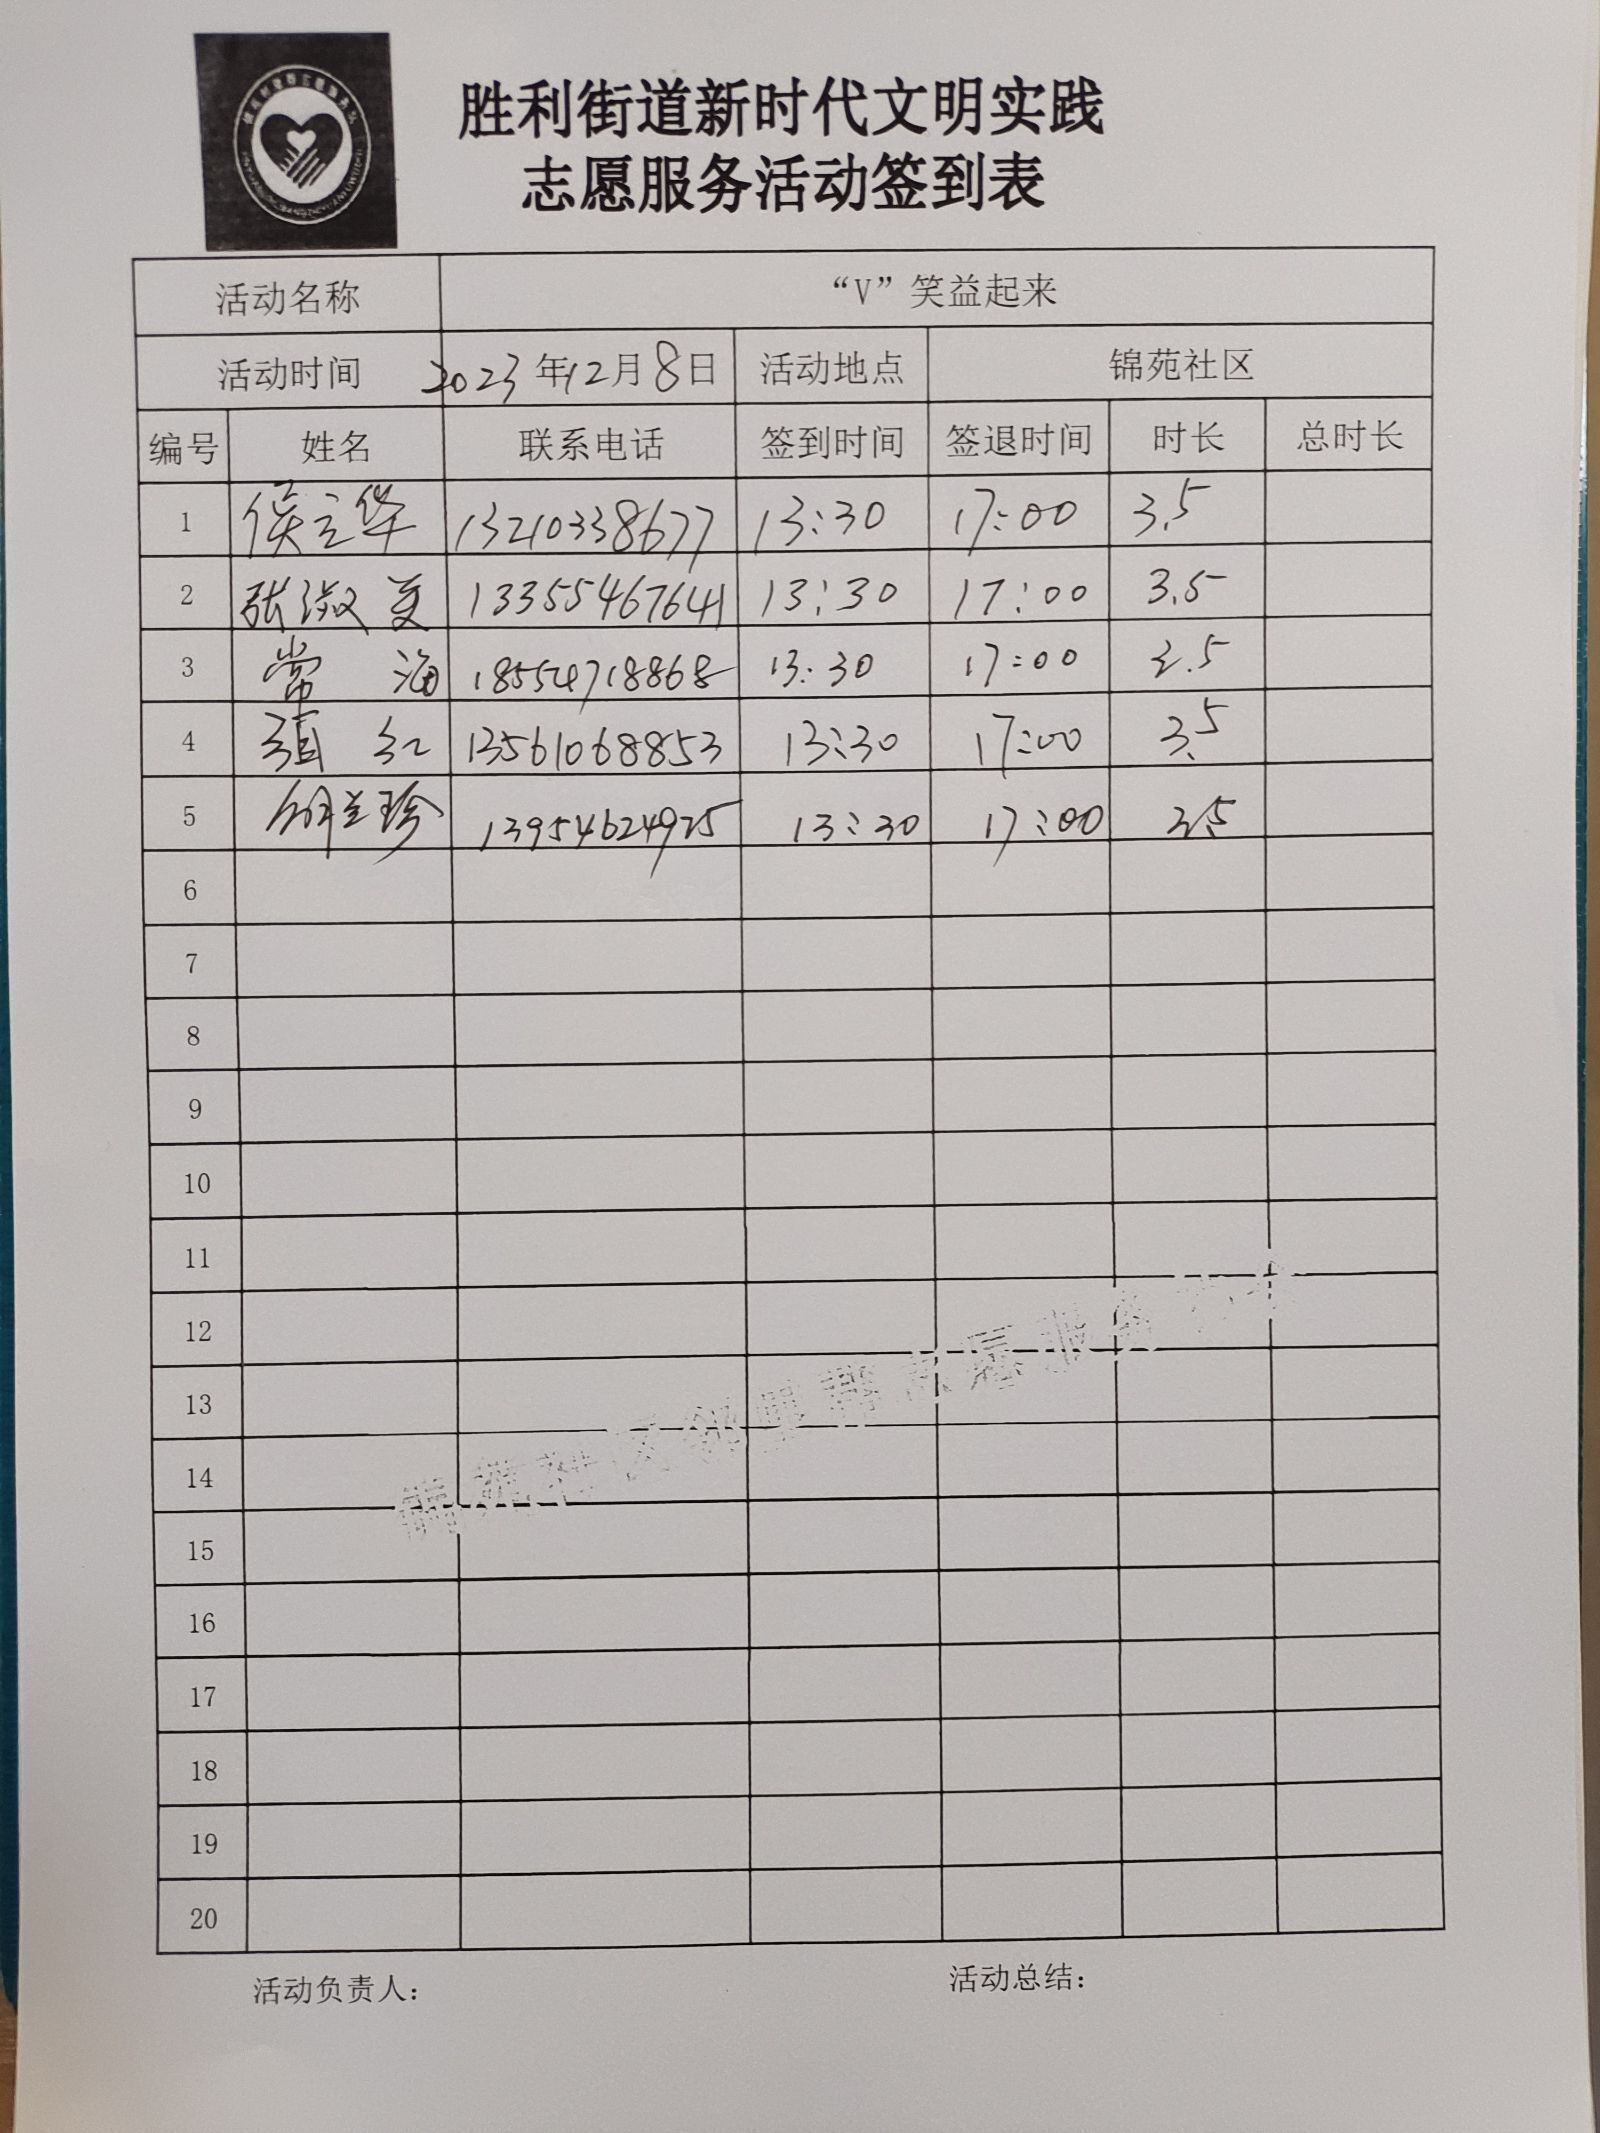 胜利街道新时代文明实践
志愿服务活动签到表
活动名称 “V”笑益起来
活动时间 2023年12月8日 活动地点 锦苑社区
编号 姓名 联系电话 签到时间 签退时间 时长 总时长
1 侯立华 13210338677 13:30 17:00 3.5
2 张淑英 13355467641 13:30 17:00 3.5
3 常海 18554718868 13:30 17:00 3.5
4 红 13561068853 13:30 17:00 3.5
5 兰珍 13954624925 13:30 17:00 3.5
6
7
8
9
10
11
12
13
14
15
16
17
18
19
20
活动负责人: 活动总结: